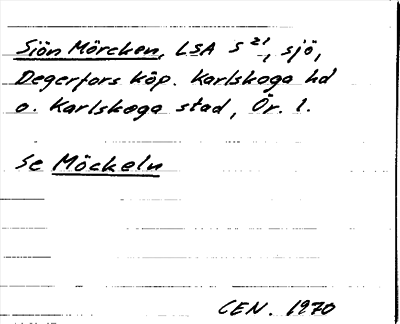 Siön Mörcken, LSA S 21, sjö,
Degerfors köp. Karlskoga hd
o. Karlskoga stad, Ör. l.
Se Möckeln
CEN. 1970